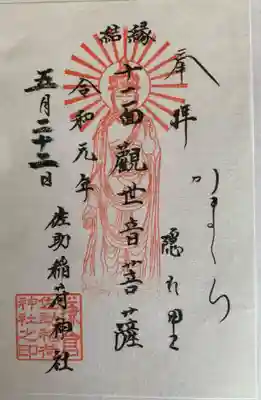 奉拝
かまくら
隠れ里
結縁
十一面觀世音菩薩
令和元年
五月二十二日
佐助稲荷神社
佐助稲荷
神社之印